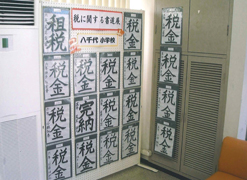 租税
税に関する書道展
八千代小学校
税金
税金
税金
税金
税金
税金
完納
税金
税金
税金
税金
税金
税金
税金
税金
税金
税金